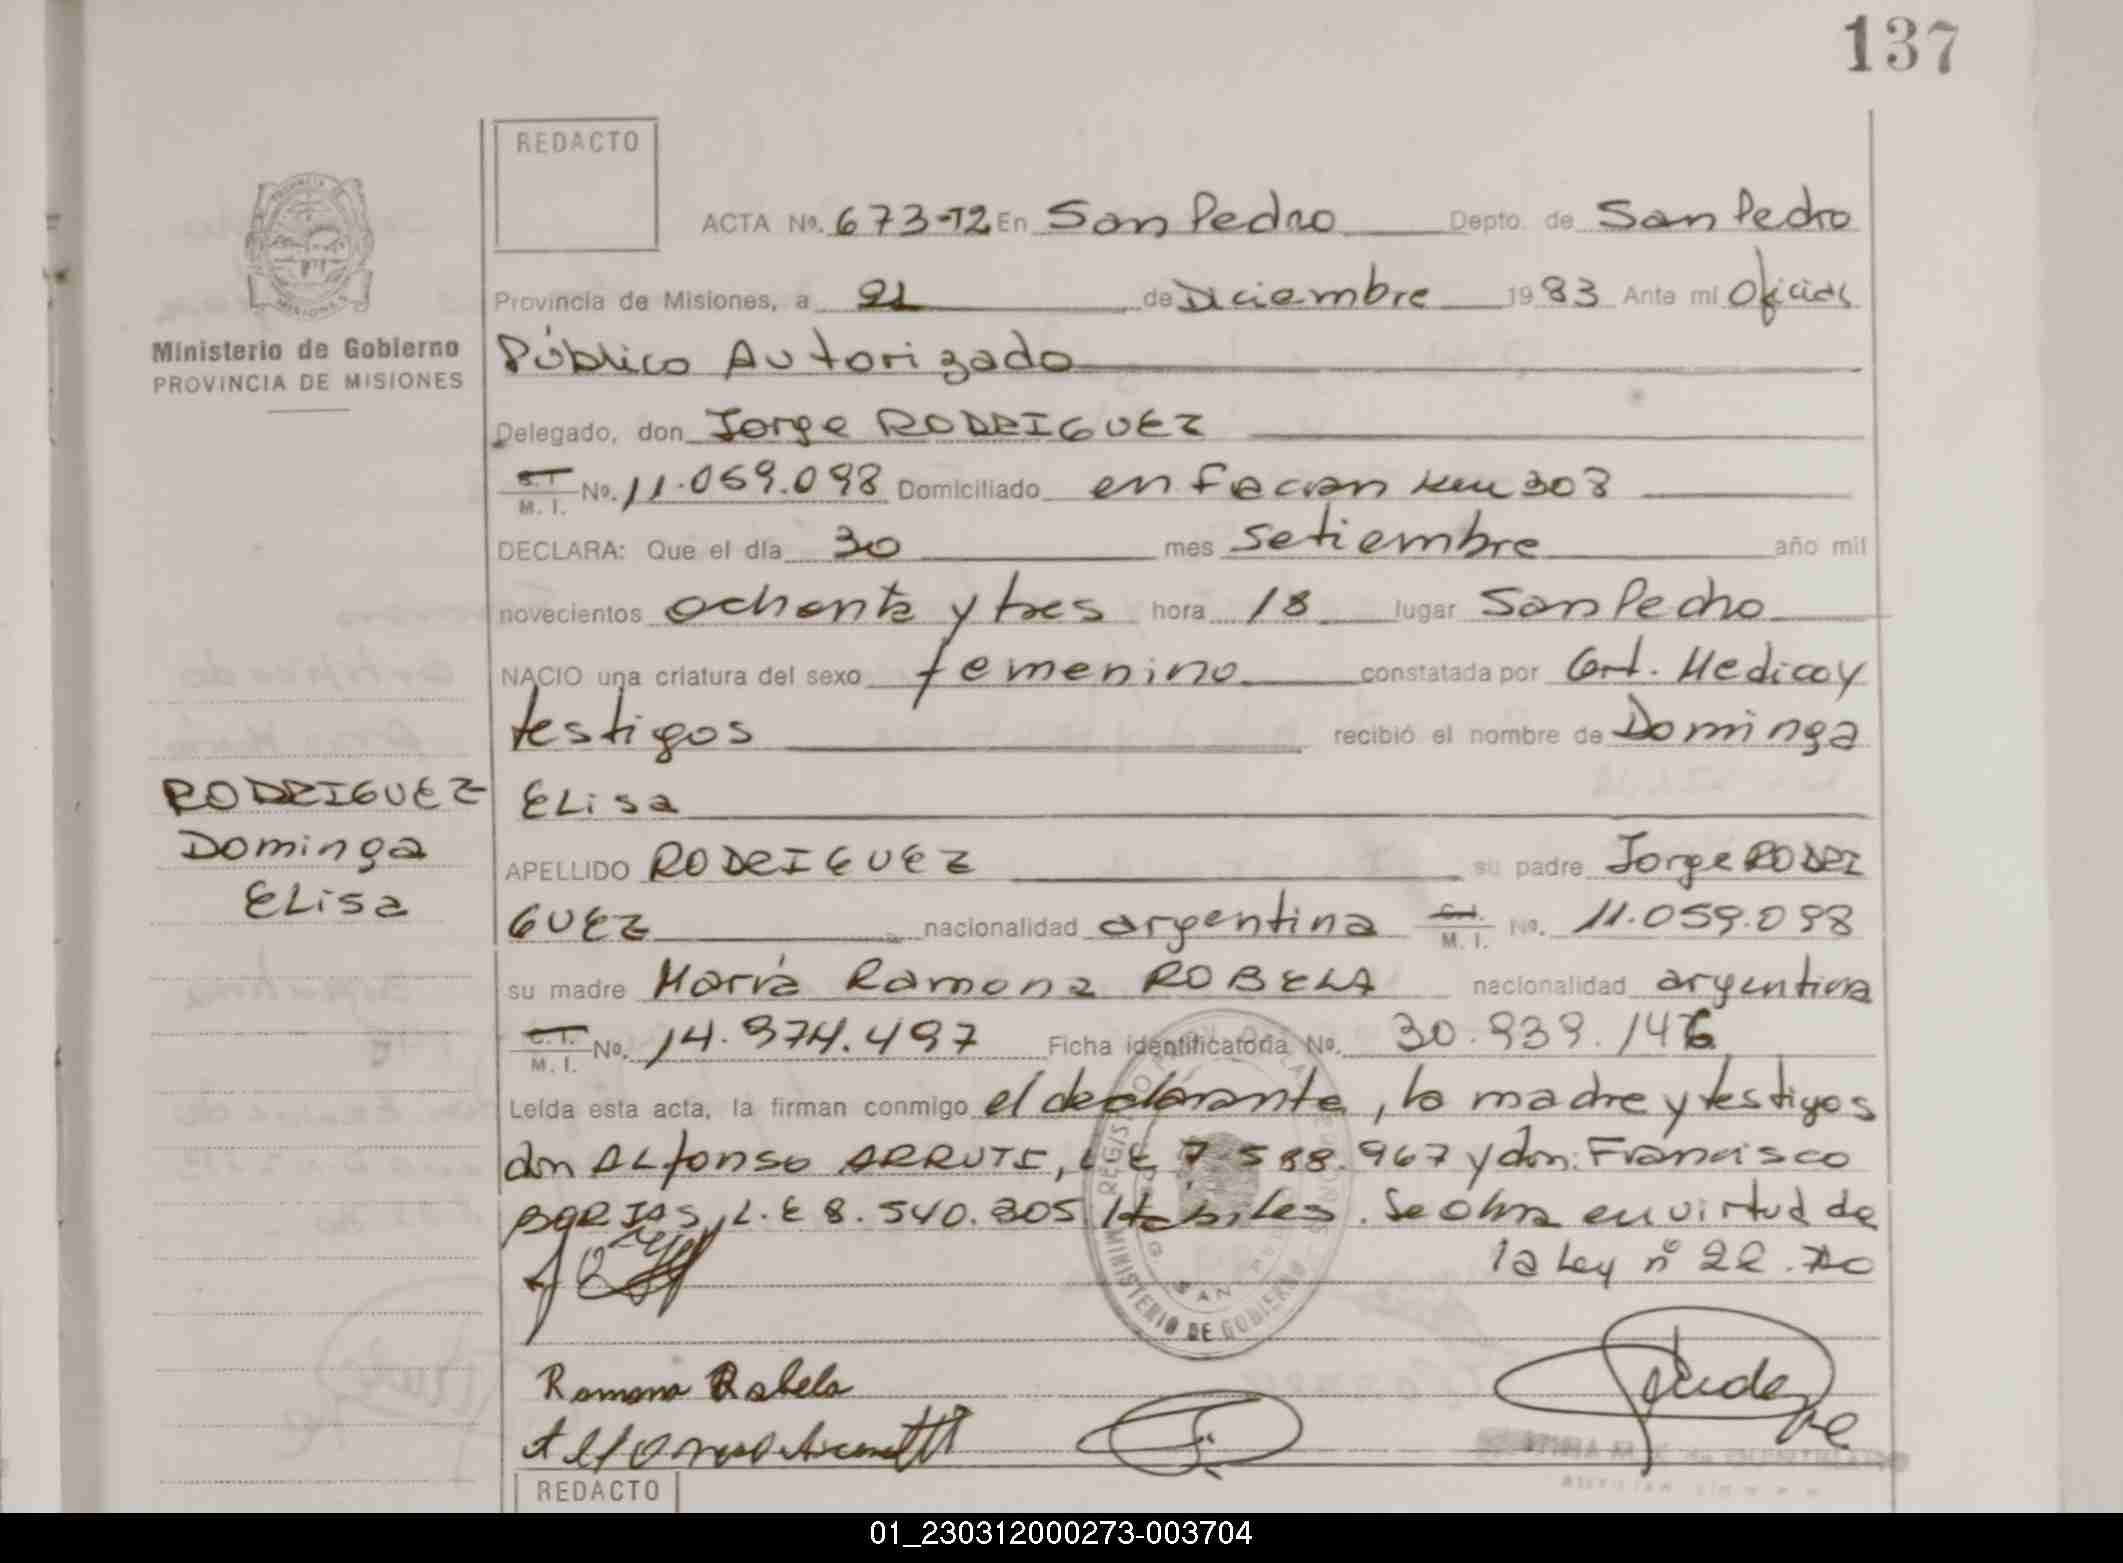 137
REDACTO
ACTA No. 673-T2 En San Pedro Depto. de San Pedro
Provincia de Misiones, a 21 de Diciembre 1983 Ante mi Oficial
Público Autorizado
Delegado, don Jorge RODRIGUEZ
C.I. M. I. No. 11.059.098 Domiciliado en Fracran km 308
DECLARA: Que el día 30 mes setiembre año mil
novecientos ochenta y tres hora 18 lugar San Pedro
NACIO una criatura del sexo femenino constatada por Cert. Medico y
testigos recibió el nombre de Dominga
ELisa
APELLIDO RODRIGUEZ su padre Jorge RODRI
GUEZ nacionalidad argentina C.I. M. I. No. 11.059.098
su madre María Ramona ROBELA nacionalidad argentina
C.I. M. I. No. 14.974.497 Ficha identificatoria No. 30.939.146
Leída esta acta, la firman conmigo el declarante, la madre y testigos
don ALfonso ARRUTI, L E 7.588.967 y don: Francisco
BORJAS, L.E 8.540.305 Habiles. Se obra en virtud de
la Ley nº 22.
Ramona Robela
Ministerio de Gobierno
PROVINCIA DE MISIONES
RODRIGUEZ
Dominga
ELisa
MINISTERIO DE GOBIERNO
REDACTO
01_230312000273-003704